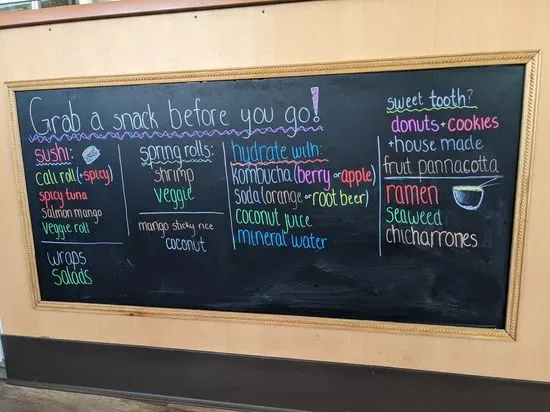 Grab a snack before you go!
sushi:
cali roll (+spicy)
spicy tuna
salmon mango
veggie roll
wraps
salads
spring rolls:
shrimp
veggie
mango sticky rice
coconut
hydrate with:
kombucha (berry or apple)
soda (orange or root beer)
coconut juice
mineral water
sweet tooth?
donuts + cookies
+ house made
fruit pannacotta
ramen
seaweed
chicharrones